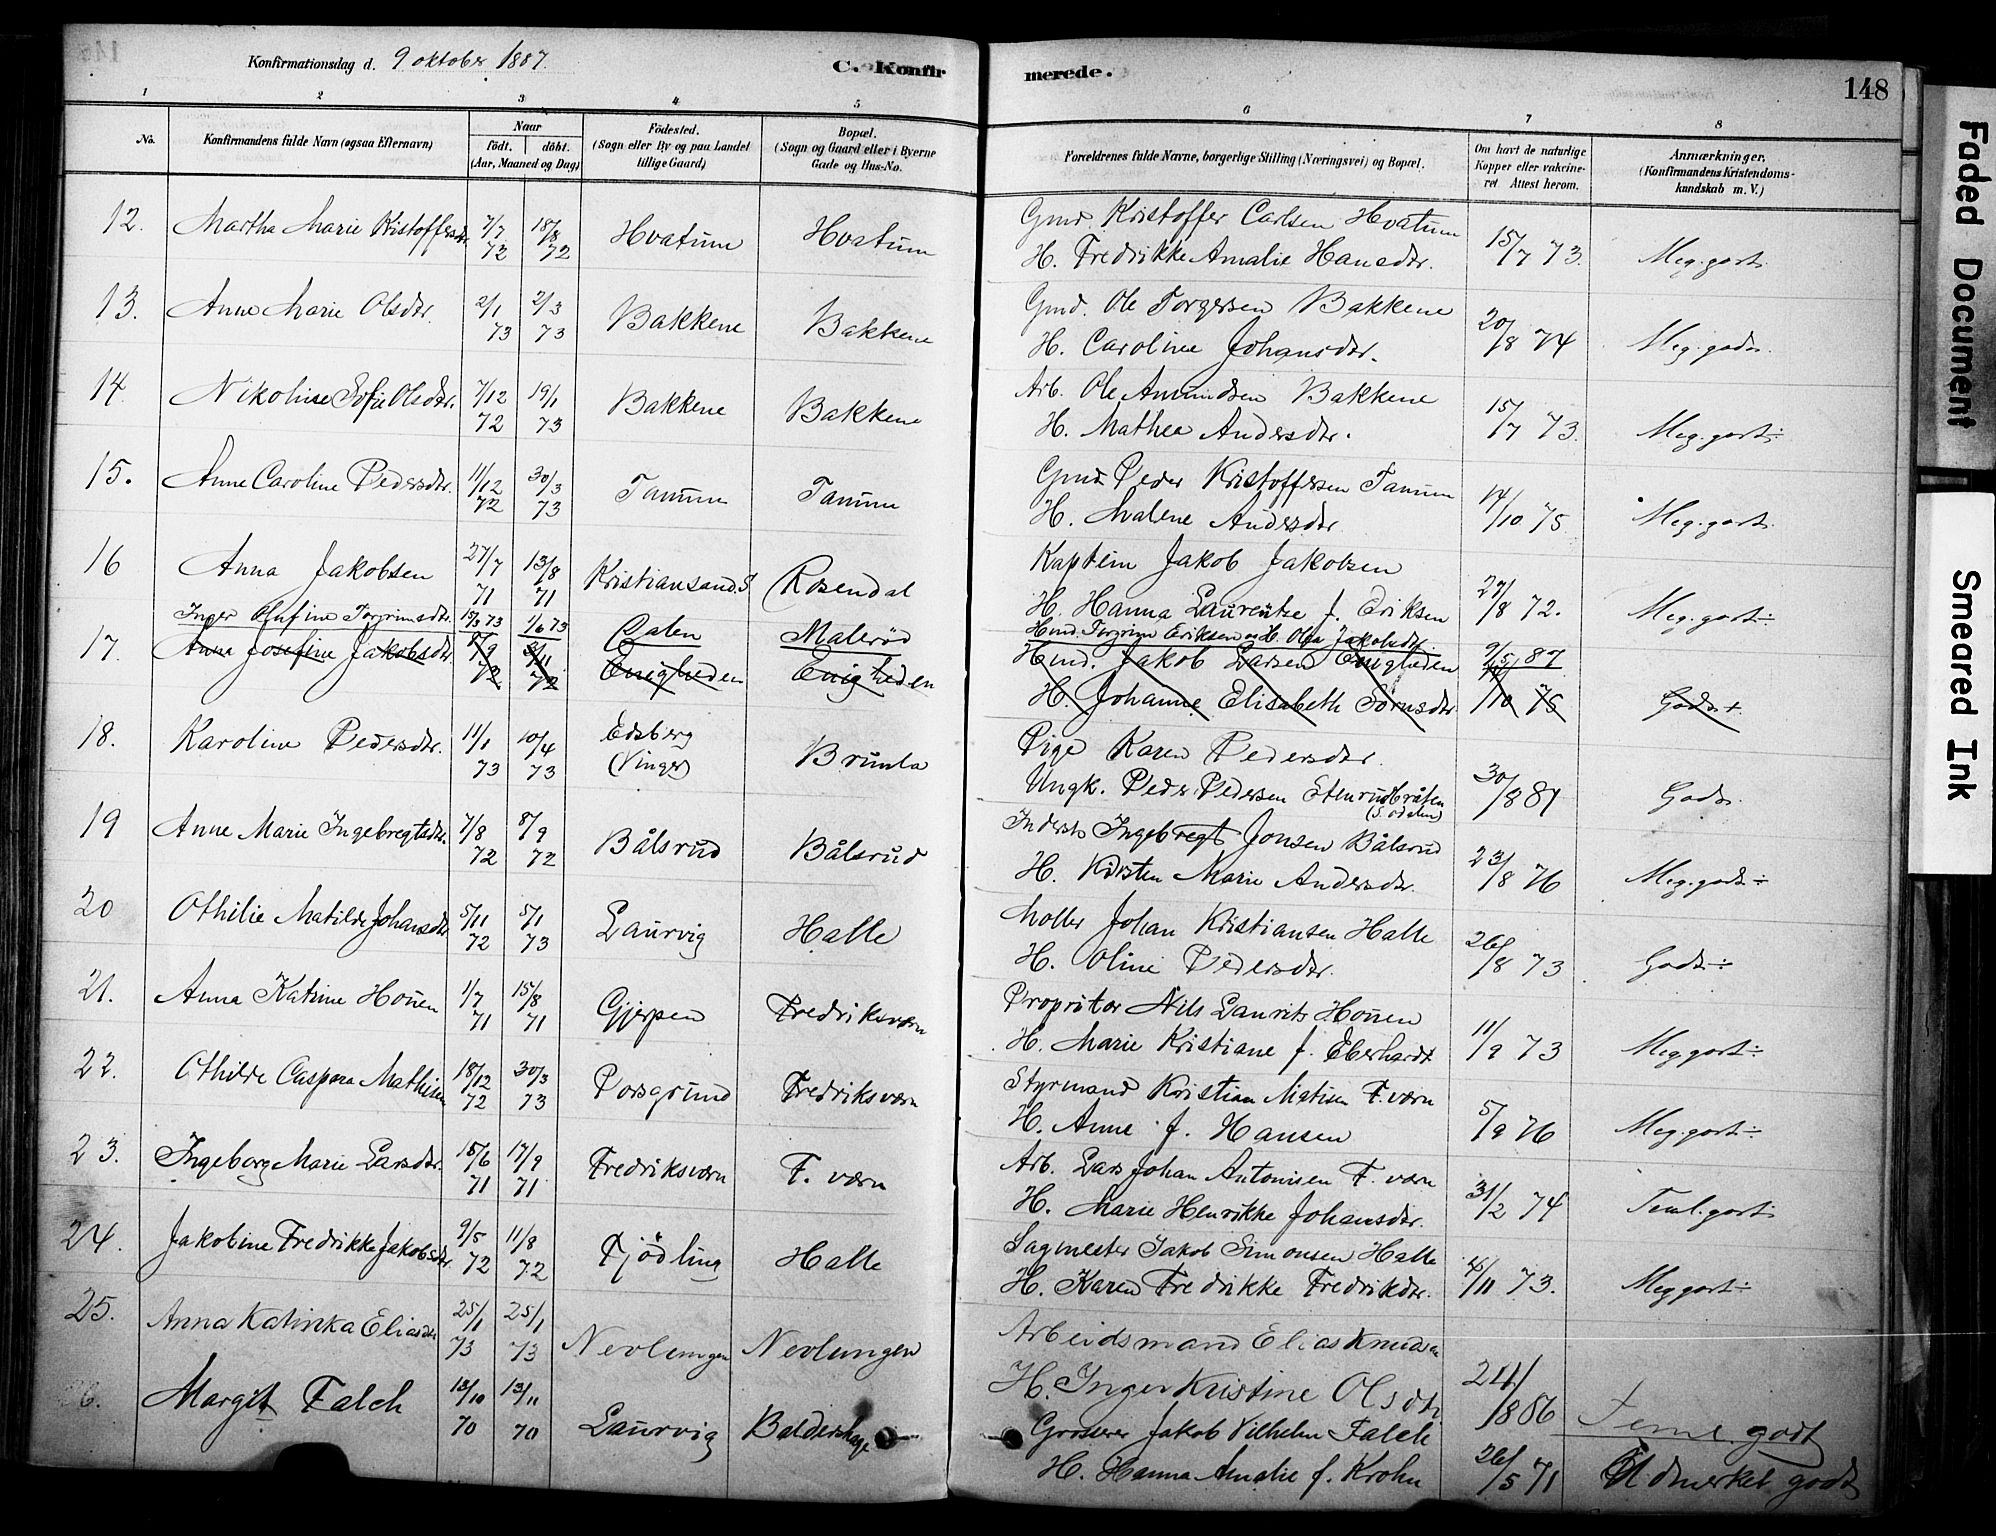 Konfirmationsdag d. 9 oktober 1887.
C. Konfirmerede.
148
1 2 3 4 5 6 7 8
No.
Konfirmandens fulde Navn (ogsaa Efternavn)
Naar
födt. döbt.
(Aar, Maaned og Dag)
Födested.
(Sogn eller By og paa Landet
tillige Gaard)
Bopæl.
(Sogn og Gaard eller i Byerne
Gade og Hus-No.
Forældrenes fulde Navne, borgerlige Stilling (Næringsvei) og Bopæl.
Om havt de naturlige
Kopper eller vakcine-
ret Attest herom.
Anmærkninger.
(Konfirmandens Kristendoms-
kundskab m. V.)
12. Martha Marie Kristoffersdr. 7/7 72 18/8 72 Hvatum Hvatum Gmd. Kristoffer Carlsen Hvatum
H. Fredrikke Amalie Hansdtr. 15/7 73. Meg. godt
13. Anne Marie Olsdtr. 2/1 73 2/3 73 Bakkene Bakkene Gmd. Ole Torgersen Bakkene
H. Caroline Johansdtr. 20/8 74 Meg. godt
14. Nikoline Sofie Olsdtr. 7/12 72 19/1 73 Bakkene Bakkene Arb. Ole Amundsen Bakkene
H. Mathea Andersdtr. 15/7 73. Meg. godt ÷
15. Anne Caroline Pedersdtr. 11/12 72 30/3 73 Tanum Tanum Gmd. Peder Kristoffersen Tanum
H. Malene Andersdtr 14/10 75 Meg. godt
16 Anna Jakobsen 27/7 71 13/8 71 Kristiansand S Rosendal Kaptein Jakob Jakobsen
H. Hanna Laurentze f. Eriksen 27/8 72. Meg. godt ÷
Inger Olufine Torgrimsdtr. 15/3 73 1/6 73 Malerød Hmd. Torgrim Eriksen og H. Olea Jakobsdtr. 9/5 87
17. Anna Josefine Jakobsdtr. 8/9 72 3/11 72 Enigheden Enigheden Hmd. Jakob Larsen Enigheden
H. Johanne Elisabeth Sörnsdtr /10 75 Godt +
18. Karoline Pedersdtr. 11/1 73 10/4 73 Edsberg
(Vinger) Brunla Pige Karen Pedersdtr.
Ungk. Peder Pedersen Stenrudbråten
(S. Odalen) 30/8 87 Godt
19 Anne Marie Ingebregtsdtr. 7/8 72 8/9 72 Bålsrud Bålsrud Inderst Ingebregt Jonsen Bålsrud
H. Kirsten Marie Andersdtr. 23/8 76 Meg. godt ÷
20 Othilie Matilde Johansdtr 5/11 72 5/1 73 Laurvig Halle Møller Johan Kristiansen Halle
H. Oline Pedersdtr. 26/8 73 Godt ÷
21. Anna Katrine Houen 1/7 71 15/8 71 Gjerpen Fredriksværn Propritær Nils Laurits Houen
H. Marie Kristiane f. Eberhardt 11/9 73 Meg godt ÷
22. Othilde Caspara Mathisen 18/12 72 30/3 73 Porsgrund Fredriksværn Styrmand Kristian Matisen F. værn
H. Anne f. Hansen 5/9 76 Meg. godt ÷
23. Ingeborg Marie Larsdtr. 15/6 71 17/9 71 Fredriksværn F. værn Arb. Lars Johan Antonisen F. værn
H. Marie Henrikke Johansdtr. 31/2 74 Teml. godt
24. Jakobine Fredrikke Jakobsdtr 9/5 72 11/8 72 Tjødling Halle Sagmester Jakob Simonsen Halle
H. Karen Fredrikke Fredriksdtr. 4/11 73. Meg godt ÷
25. Anna Katinka Eliasdtr 25/1 73 25/1 73 Nevlungen Nevlungen Arbeidsmand Elias Knudsen
H. Inger Kristine Olsdtr 24/8 86 Teml. godt
26. Margit Falch 13/10 70 13/11 70 Laurvig Baldershage Grosserer Jakob Vilhelm Falch
H. Hanna Amalie f. Krohn 26/5 71 Udmerket godt
Faded Document
Smeared Ink